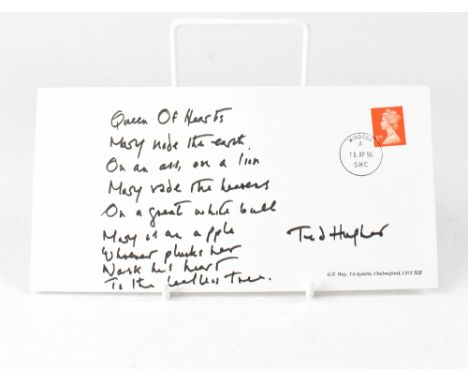 Queen Of Hearts
Mary rode the earth.
On an ass, on a lion
Mary rode the heavens
On a great white bull
Mary is an apple
Whoever plucks her
Nails his heart
To the leafless Tree.
Ted Hughes
WINDSOR
A
16 AP 96
SHC
1st
G.F. Hay, 14 Ayletts, Chelmsford, CM1